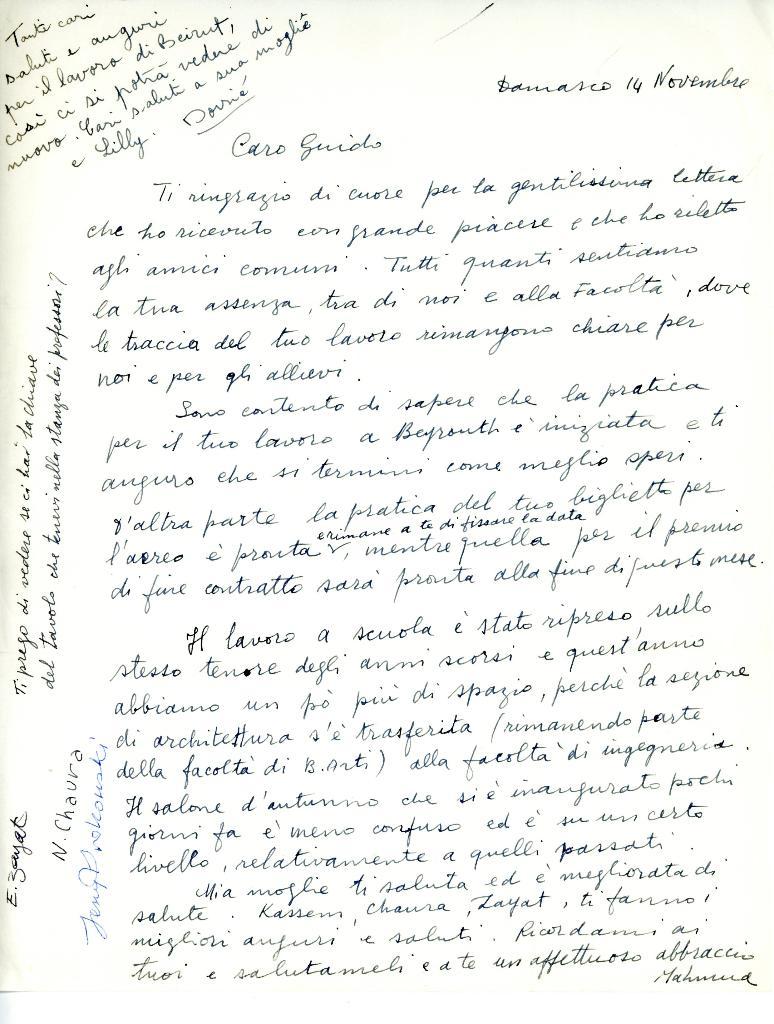 Tanti cari
saluti e auguri
per il lavoro di Beirut,
così ci si potrà vedere di
nuovo. Cari saluti a sua moglie
e Lilly.
Damasco 14 Novembre
Caro Guido
Ti ringrazio di cuore per la gentilissima lettera
che ho ricevuto con grande piacere e che ho riletto
agli amici comuni. Tutti quanti sentiamo
la tua assenza, tra di noi e alla Facoltà, dove
le traccia del tuo lavoro rimangono chiare per
noi e per gli allievi.
Sono contento di sapere che la pratica
per il tuo lavoro a Beyrouth è iniziata e ti
auguro che si termini come meglio speri.
D'altra parte la pratica del tuo biglietto per
e rimane a te di fissare la data
l'aereo è pronta V, mentre quella per il premio
di fine contratto sarà pronta alla fine di questo mese.
Il lavoro a scuola è stato ripreso sullo
stesso tenore degli anni scorsi e quest'anno
abbiamo un pò più di spazio, perchè la sezione
di architettura s'è trasferita (rimanendo parte
della facoltà di B.Arti) alla facoltà di ingegneria.
Il salone d'autunno che si è inaugurato pochi
giorni fa è meno confuso ed è su un certo
livello, relativamente a quelli passati.
Mia moglie ti saluta ed è migliorata di
salute. Kassem, Chaura, Zayat, ti fanno i
migliori auguri e saluti. Ricordami ai
tuoi e salutameli e a te un affettuoso abbraccio
Mahmud
Ti prego di vedere se ci hai la chiave
del tavolo che tenevi nella stanza dei professori?
E. Zayat
N. Chaura